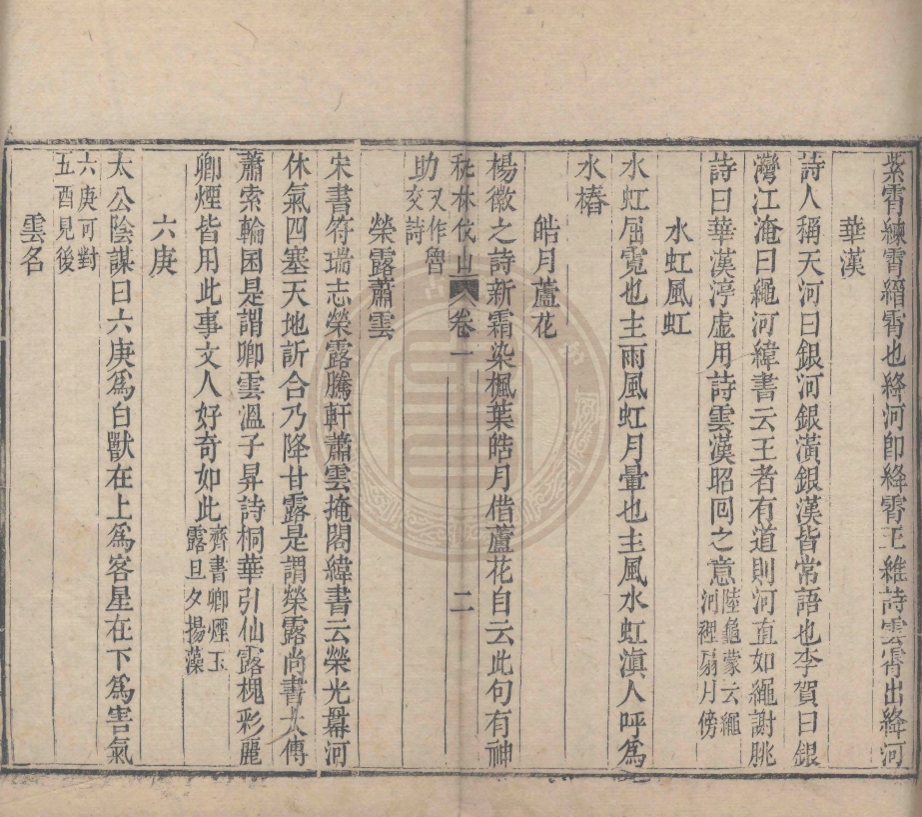 紫霄練霄縉霄也絳河卽絳霄王維詩雲霄出絳河
華漢
詩人稱天河曰銀河銀潢銀漢皆常語也李賀曰銀
灣江淹曰繩河緯書云王者有道則河直如繩謝朓
詩曰華漢渟虛用詩雲漢昭回之意陸龜蒙云繩河裡扇月傍
水虹風虹
水虹屈霓也主雨風虹月暈也主風水虹滇人呼爲
水樁
皓月蘆花
楊徽之詩新霜染楓葉皓月借蘆花自云此句有神
秇林伐山 卷一 二
助又作魯交詩
榮露蕭雲
宋書符瑞志榮露騰軒蕭雲掩閣緯書云榮光羃河
休氣四塞天地訢合乃降甘露是謂榮露尚書大傳
蕭索輪囷是謂卿雲溫子昇詩桐華引仙露槐彩麗
卿煙皆用此事文人好奇如此齊書卿煙玉露旦夕揚藻
六庚
太公陰謀曰六庚爲白獸在上爲客星在下爲害氣
六庚可對五酉見後
雲名